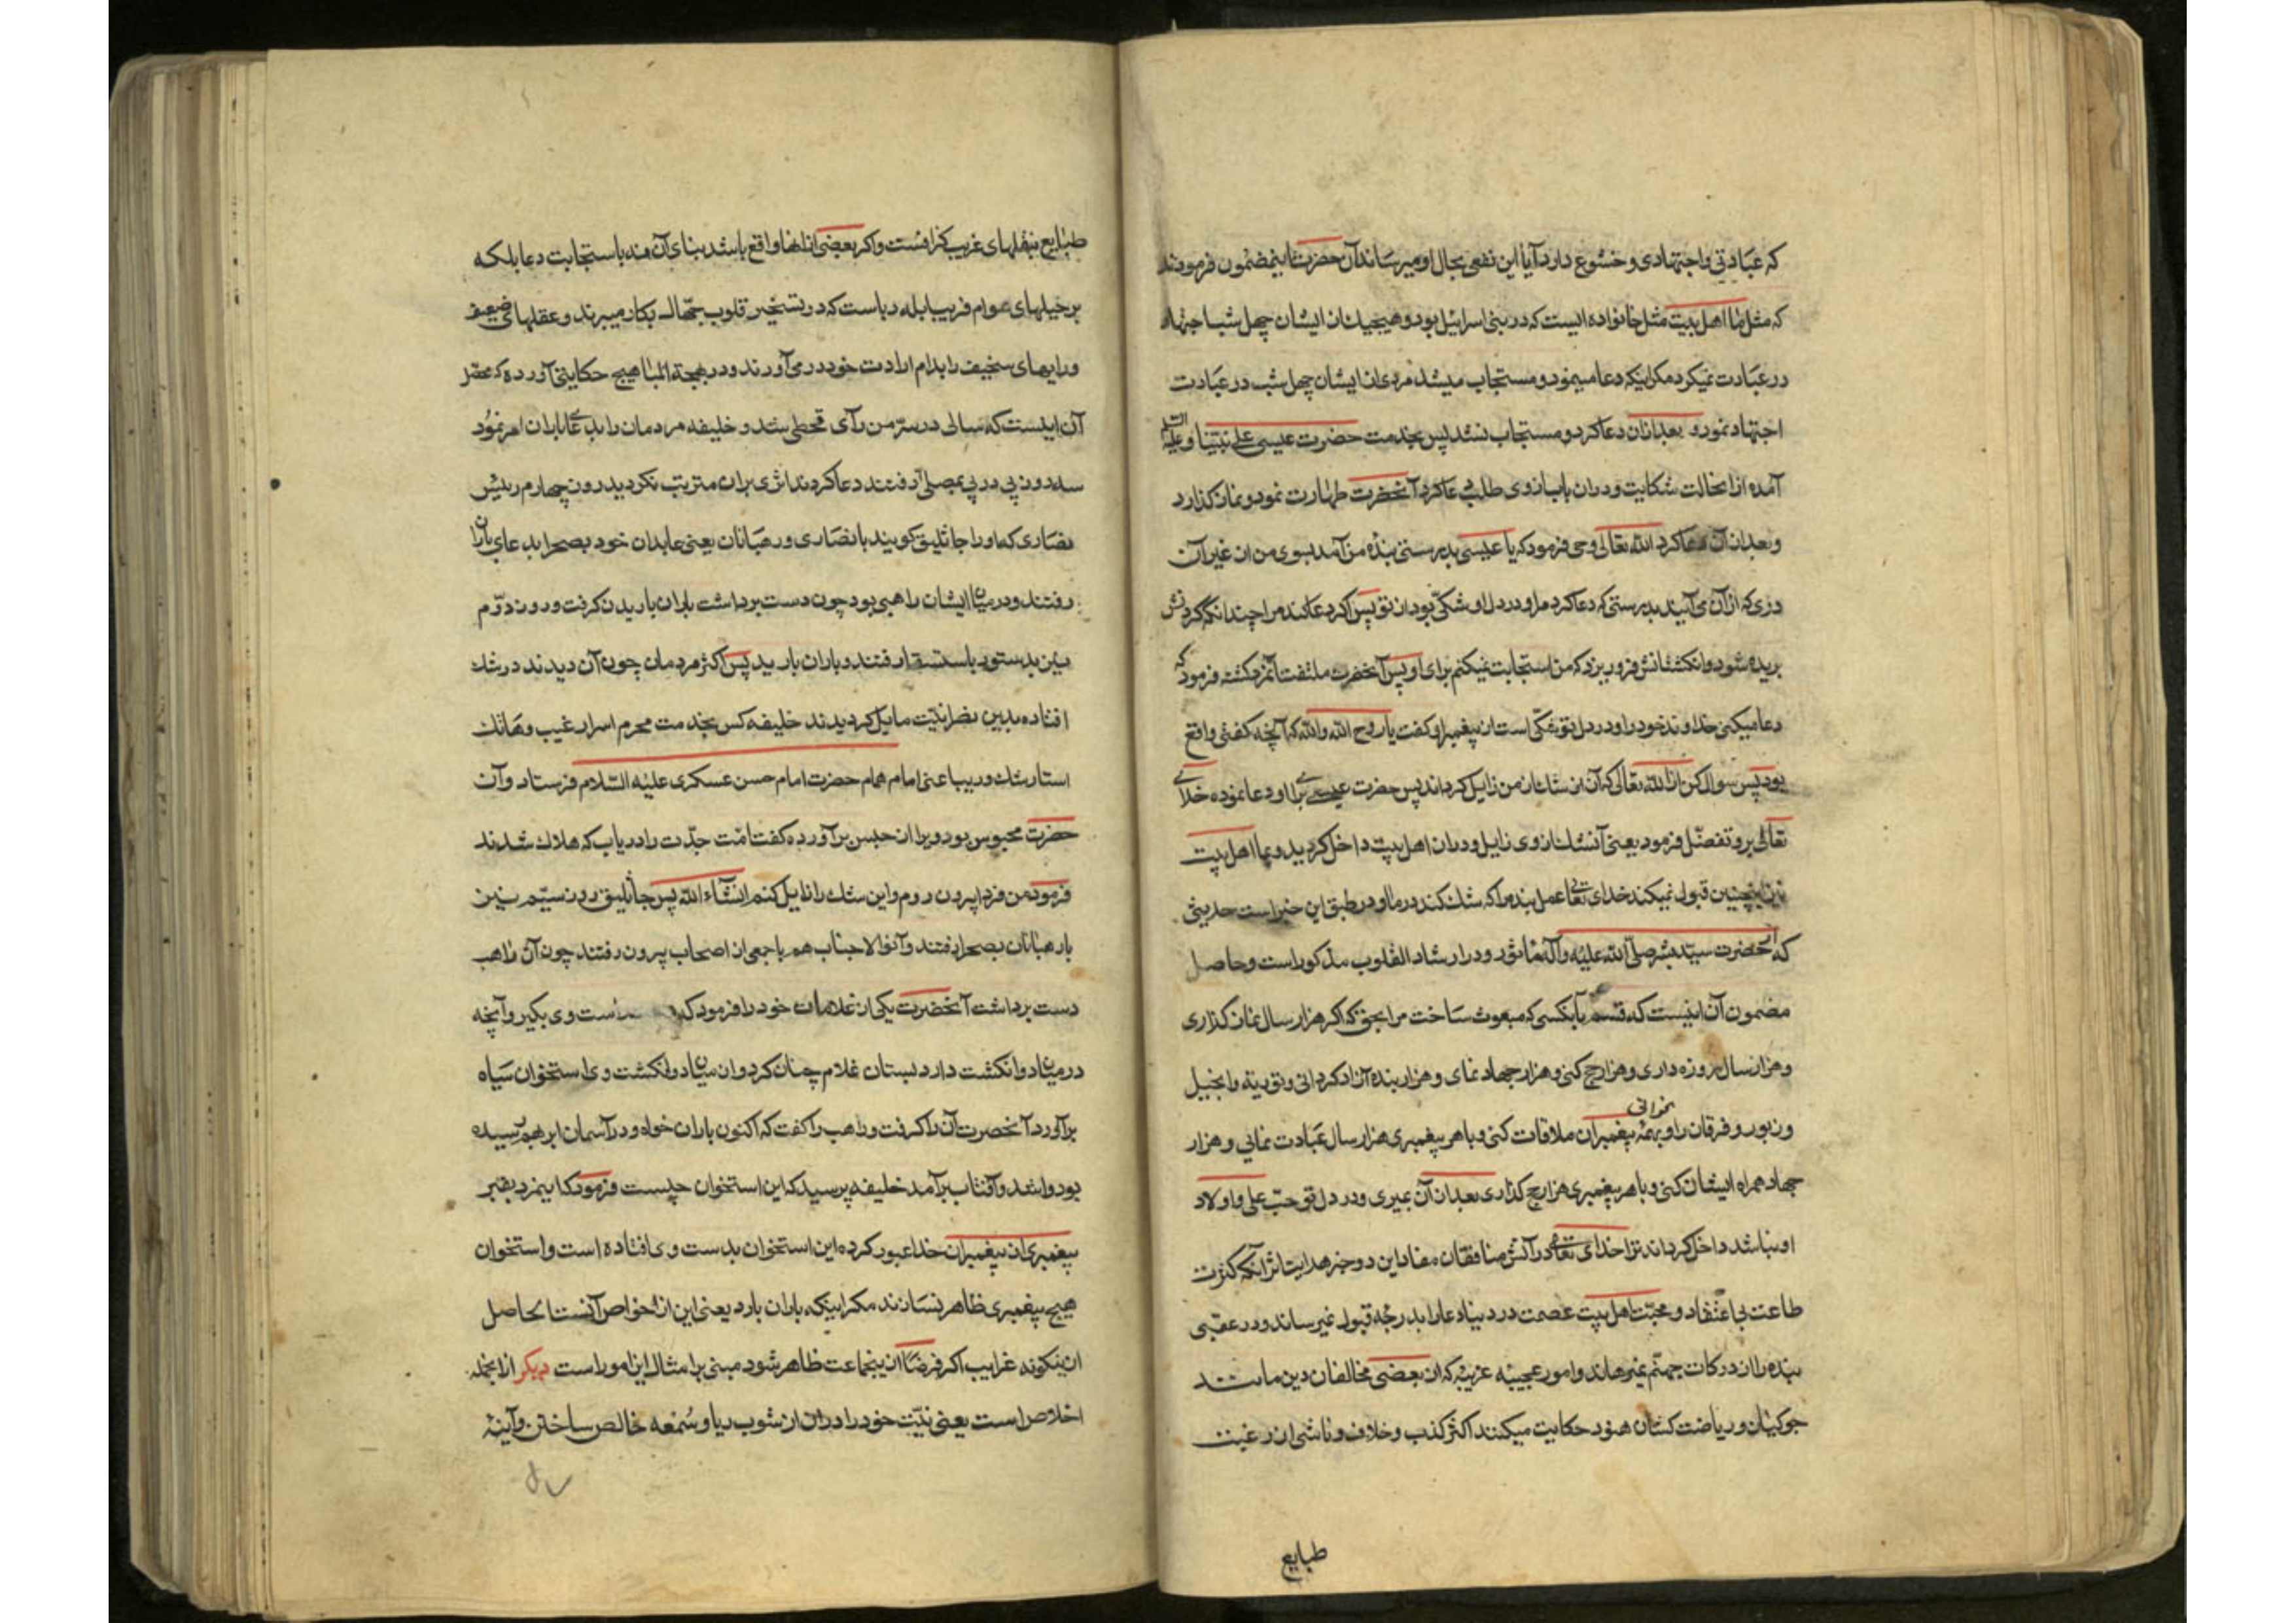 که عبادتی و اجتهادی و خشوع دارد آیا این نفعی بحال او میرساند آن حضرت باینمضمون فرمودند
که مثل ما اهل بیت مثل خانواده ایست که در بنی اسرائیل بود و هیچیک از ایشان چهل شب اجتهاد
در عبادت نمیکرد مگر اینکه دعا مینمود و مستجاب میشد مردی از ایشان چهل شب در عبادت
اجتهاد نمود و بعد از آن دعا کرد و مستجاب نشد پس بخدمت حضرت عیسی علی نبینا و علیه السلم
آمده از انحالت شکایت و در آن باب از وی طلب دعا کرد آنحضرت طهارت نمود و نماز گذارد
و بعد از آن دعا کرد الله تعالی وحی فرمود که یا عیسی بدرستی بنده من آمد بسوی من از غیر آن
دری که از آن می آیند بدرستی که دعا کرد مرا و در دل او شکی بود از تو پس اگر دعا کند مرا چندانکه گردنش
بریده شود و انگشتانش فرو ریزد که من استجابت نمیکنم برای او پس آنحضرت ملتفت آنمرد گشته فرمود که
دعا میکنی خداوند خود را و در دل تو شکی است از پیغمبر او گفت یا روح الله والله که آنچه گفتی واقع
بود پس سوال کن از الله تعالی که آن شک از من زایل گرداند پس حضرت عیسی برای او دعا نموده خدای
تعالی برو تفضل فرمود یعنی آنشک از وی زایل و در آن اهل بیت داخل گردید و ما اهل بیت
نیز اینچنین قبول نمیکند خدای تعالی عمل بنده را که شک کند در ما و در طبق این خبر است حدیثی
که از حضرت سید بشر صلی الله علیه و آله ماثور و در ارشاد القلوب مذکور است و حاصل
مضمون آن اینست که قسم بآنکسی که مبعوث ساخت مرا بحق که اگر هزار سال نماز گذاری
و هزار سال روزه داری و هزار حج کنی و هزار جهاد نمای و هزار بنده آزاد گردانی و توریة و انجیل
و زبور و فرقان را بخوانی و بهمه پیغمبران ملاقات کنی و با هر پیغمبری هزار سال عبادت نمایی و هزار
جهاد همراه ایشان کنی و با هر پیغمبری هزار حج گذاری بعد از آن بمیری و در دل تو حب علی و اولاد
او نباشد داخل گرداند ترا خدای تعالی در آتش منافقان مفاد این دو خبر هدایت اثر آنکه کثرت
طاعت بی اعتقاد و محبت اهل بیت عصمت در دنیا دعا را بدرجه قبول نمیرساند و در عقبی
بنده را از درکات جهنم نمیرهاند و امور عجیبه غریبه که از بعضی مخالفان دین مانند
جوکیان و ریاضت کشان هنود حکایت میکنند اکثر کذب و خلاف و ناشی از رغبت
طبایع
طبایع بنقلهای غریب گزافست و اگر بعضی از آنها واقع باشد بنای آن نه باستجابت دعا بلکه
بر حیلهای عوام فریب ابله رباست که در تسخیر قلوب جهال بکار میبرند و عقلهای ضعیف
و رایهای سخیف را بدام ارادت خود در می آورند و در بهجة المباهیج حکایتی آورده که محصل
آن اینست که سالی در سر من رآی قحطی شد و خلیفه مردمان را بدعای باران امر نمود
سه روز پی در پی بمصلی رفتند دعا کردند اثری بران مترتب نگردید روز چهارم رییس
نصاری که او را جاثلیق گویند با نصاری و رهبانان یعنی عابدان خود بصحرا بدعای باران
رفتند و در میان ایشان راهبی بود چون دست برداشت باران باریدن گرفت و روز دوم
نیز بدستور باستسقا رفتند و باران بارید پس اکثر مردمان چون آن دیدند در شک
افتاده بدین نصرانیت مایل گردیدند خلیفه کس بخدمت محرم اسرار غیب و هاتک
استار شک و ریب اعنی امام همام حضرت امام حسن عسکری علیه السلام فرستاد و آن
حضرت محبوس بود ویرا از حبس برآورده گفت امت جدت را دریاب که هلاک شدند
فرمود من فردا بیرون روم و این شک را زایل کنم انشاء الله پس جاثلیق روز سیم نیز
با رهبانان بصحرا رفتند و آنوالا جناب هم با جمعی از اصحاب بیرون رفتند چون آن راهب
دست برداشت آنحضرت یکی از غلامان خود را فرمود که دست وی بگیر و آنچه
در میان دو انگشت دارد بستان غلام چنان کرد و از میان دو انگشت وی استخوان سیاه
برآورد آنحضرت آن را گرفت و راهب را گفت که اکنون باران خواه و در آسمان ابر بهم رسیده
بود وا شد و آفتاب برآمد خلیفه پرسید که این استخوان چیست فرمود که اینمرد بقبر
پیغمبری از پیغمبران خدا عبور کرده این استخوان بدست وی افتاده است و استخوان
هیچ پیغمبری ظاهر نسازند مگر اینکه باران بارد یعنی این از خواص آنست الحاصل
اینگونه غرایب اگر فرضا از ینجماعت ظاهر شود مبنی بر امثال این امور است دیگر از انجمله
اخلاص است یعنی نیت خود را در آن از شوب ریا و سمعه خالص ساختن و آینه